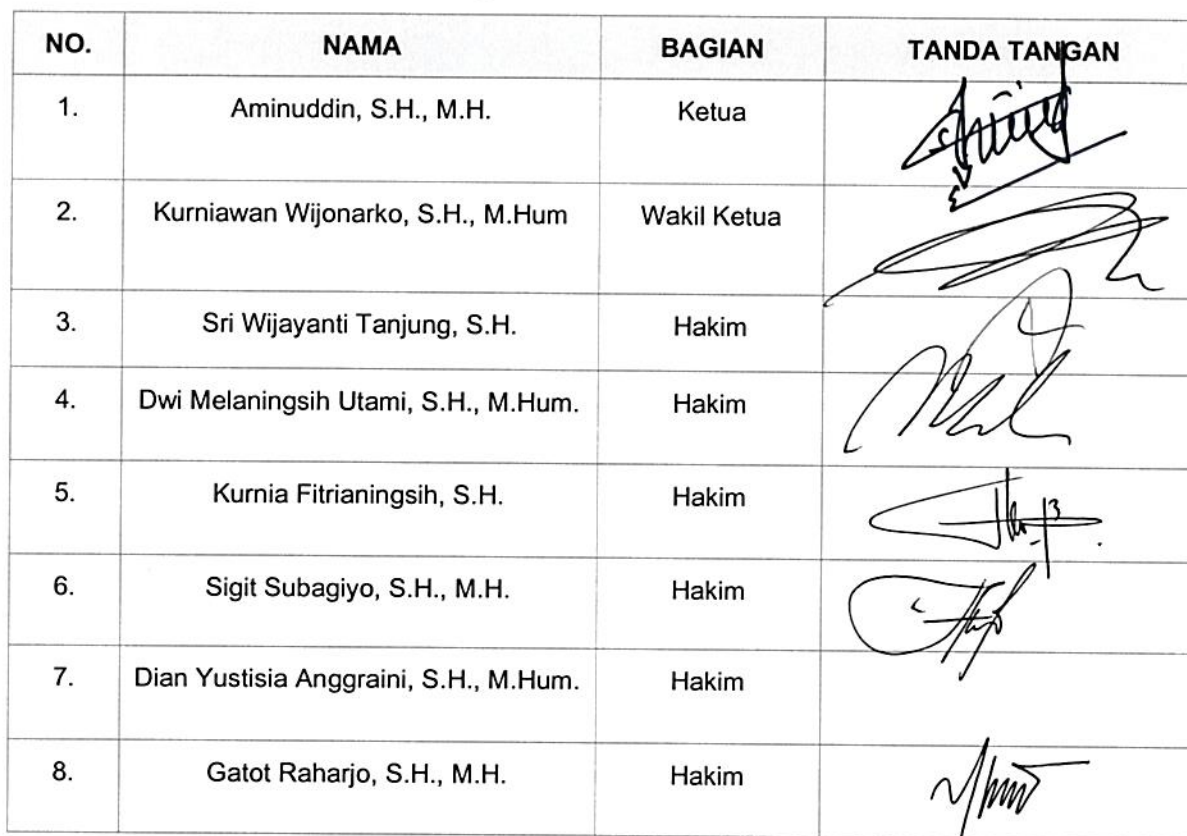 NO. NAMA BAGIAN TANDA TANGAN
1. Aminuddin, S.H., M.H. Ketua
2. Kurniawan Wijonarko, S.H., M.Hum Wakil Ketua
3. Sri Wijayanti Tanjung, S.H. Hakim
4. Dwi Melaningsih Utami, S.H., M.Hum. Hakim
5. Kurnia Fitrianingsih, S.H. Hakim
6. Sigit Subagiyo, S.H., M.H. Hakim
7. Dian Yustisia Anggraini, S.H., M.Hum. Hakim
8. Gatot Raharjo, S.H., M.H. Hakim